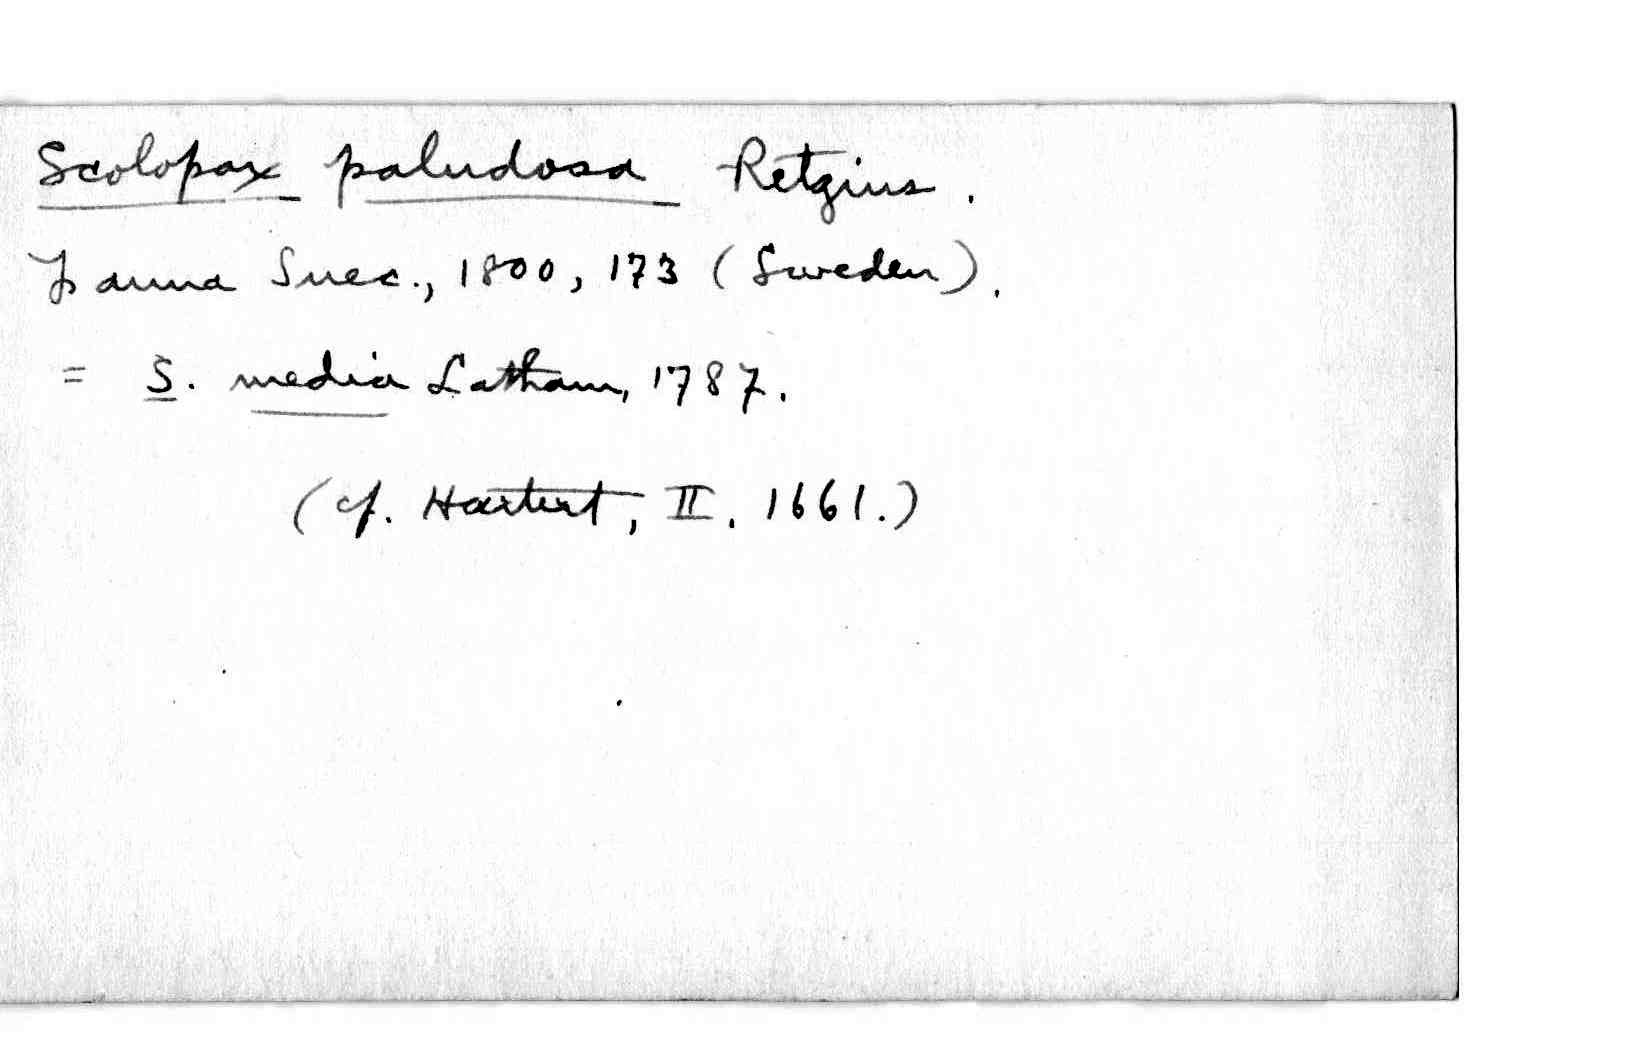 Scolopax paludosa Retzius.
Fauna Suec., 1800, 173 (Sweden).
= S. media Latham, 1787.
(cf. Hartert, II. 1661.)